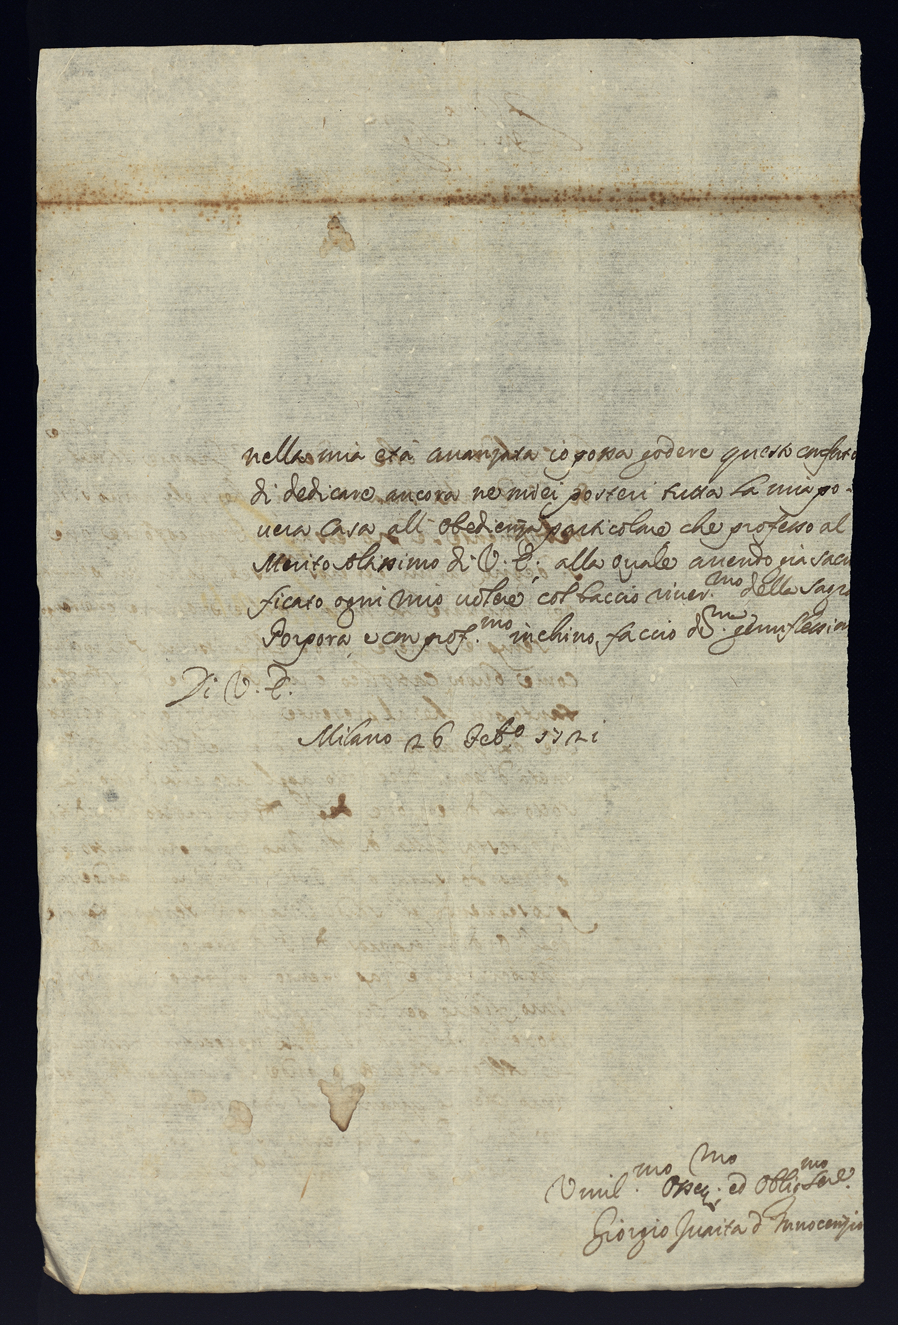 nella mia età avanzata io possa godere questo conforto
di dedicare ancora ne miei posteri tutta la mia po-
vera Casa all' obedienza particolare che professo al
Merito Altissimo di V. E. alla quale avendo già sacri
ficato ogni mio volere col baccio river.mo della Sagra
Porpora e con prof.mo inchino, faccio
Di V. E.
Milano 26 Feb.o 1721
Umil.mo Osseq.mo ed Oblig.mo Ser.e
Giorgio d' Innocenzio